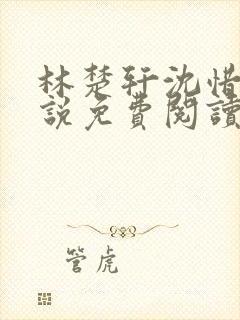 林楚轩沈惜
說免費閱讀
管虎